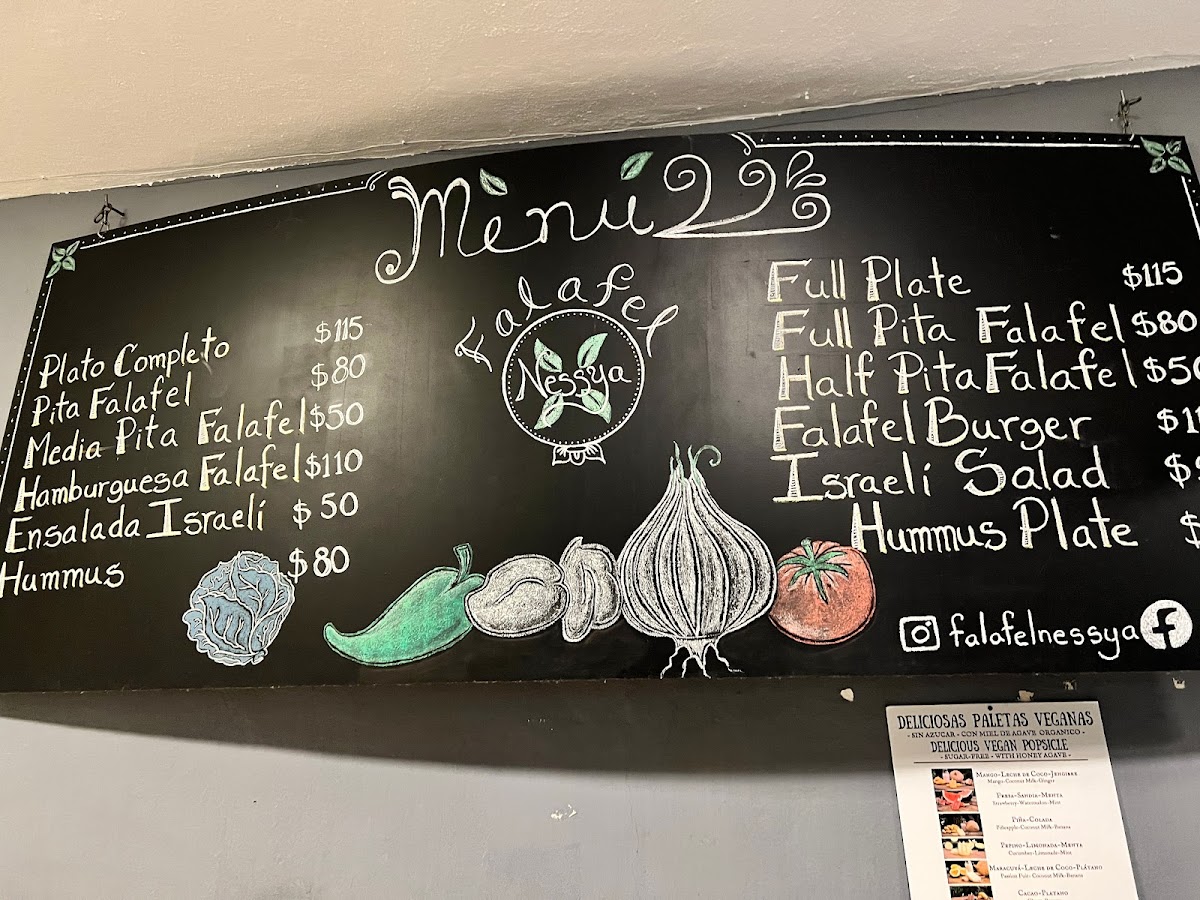 Menú
Falafel
Nessya
Plato Completo $115
Pita Falafel $80
Media Pita Falafel $50
Hamburguesa Falafel $110
Ensalada Israelí $50
Hummus $80
Full Plate $115
Full Pita Falafel $80
Half Pita Falafel $50
Falafel Burger
Israeli Salad
Hummus Plate
falafelnessya
DELICIOSAS PALETAS VEGANAS
- SIN AZUCAR - CON MIEL DE AGAVE ORGANICO -
DELICIOUS VEGAN POPSICLE
- SUGAR-FREE - WITH HONEY AGAVE -
MANGO-LECHE DE COCO-JENGIBRE
Mango-Coconut Milk-Ginger
FRESA-SANDIA-MENTA
Strawberry-Watermelon-Mint
PIÑA-COLADA
Pineapple-Coconut Milk-Banana
PEPINO-LIMONADA-MENTA
Cucumber-Limonade-Mint
MARACUYÁ-LECHE DE COCO-PLÁTANO
Passion Fruit-Coconut Milk-Banana
CACAO-PLATANO